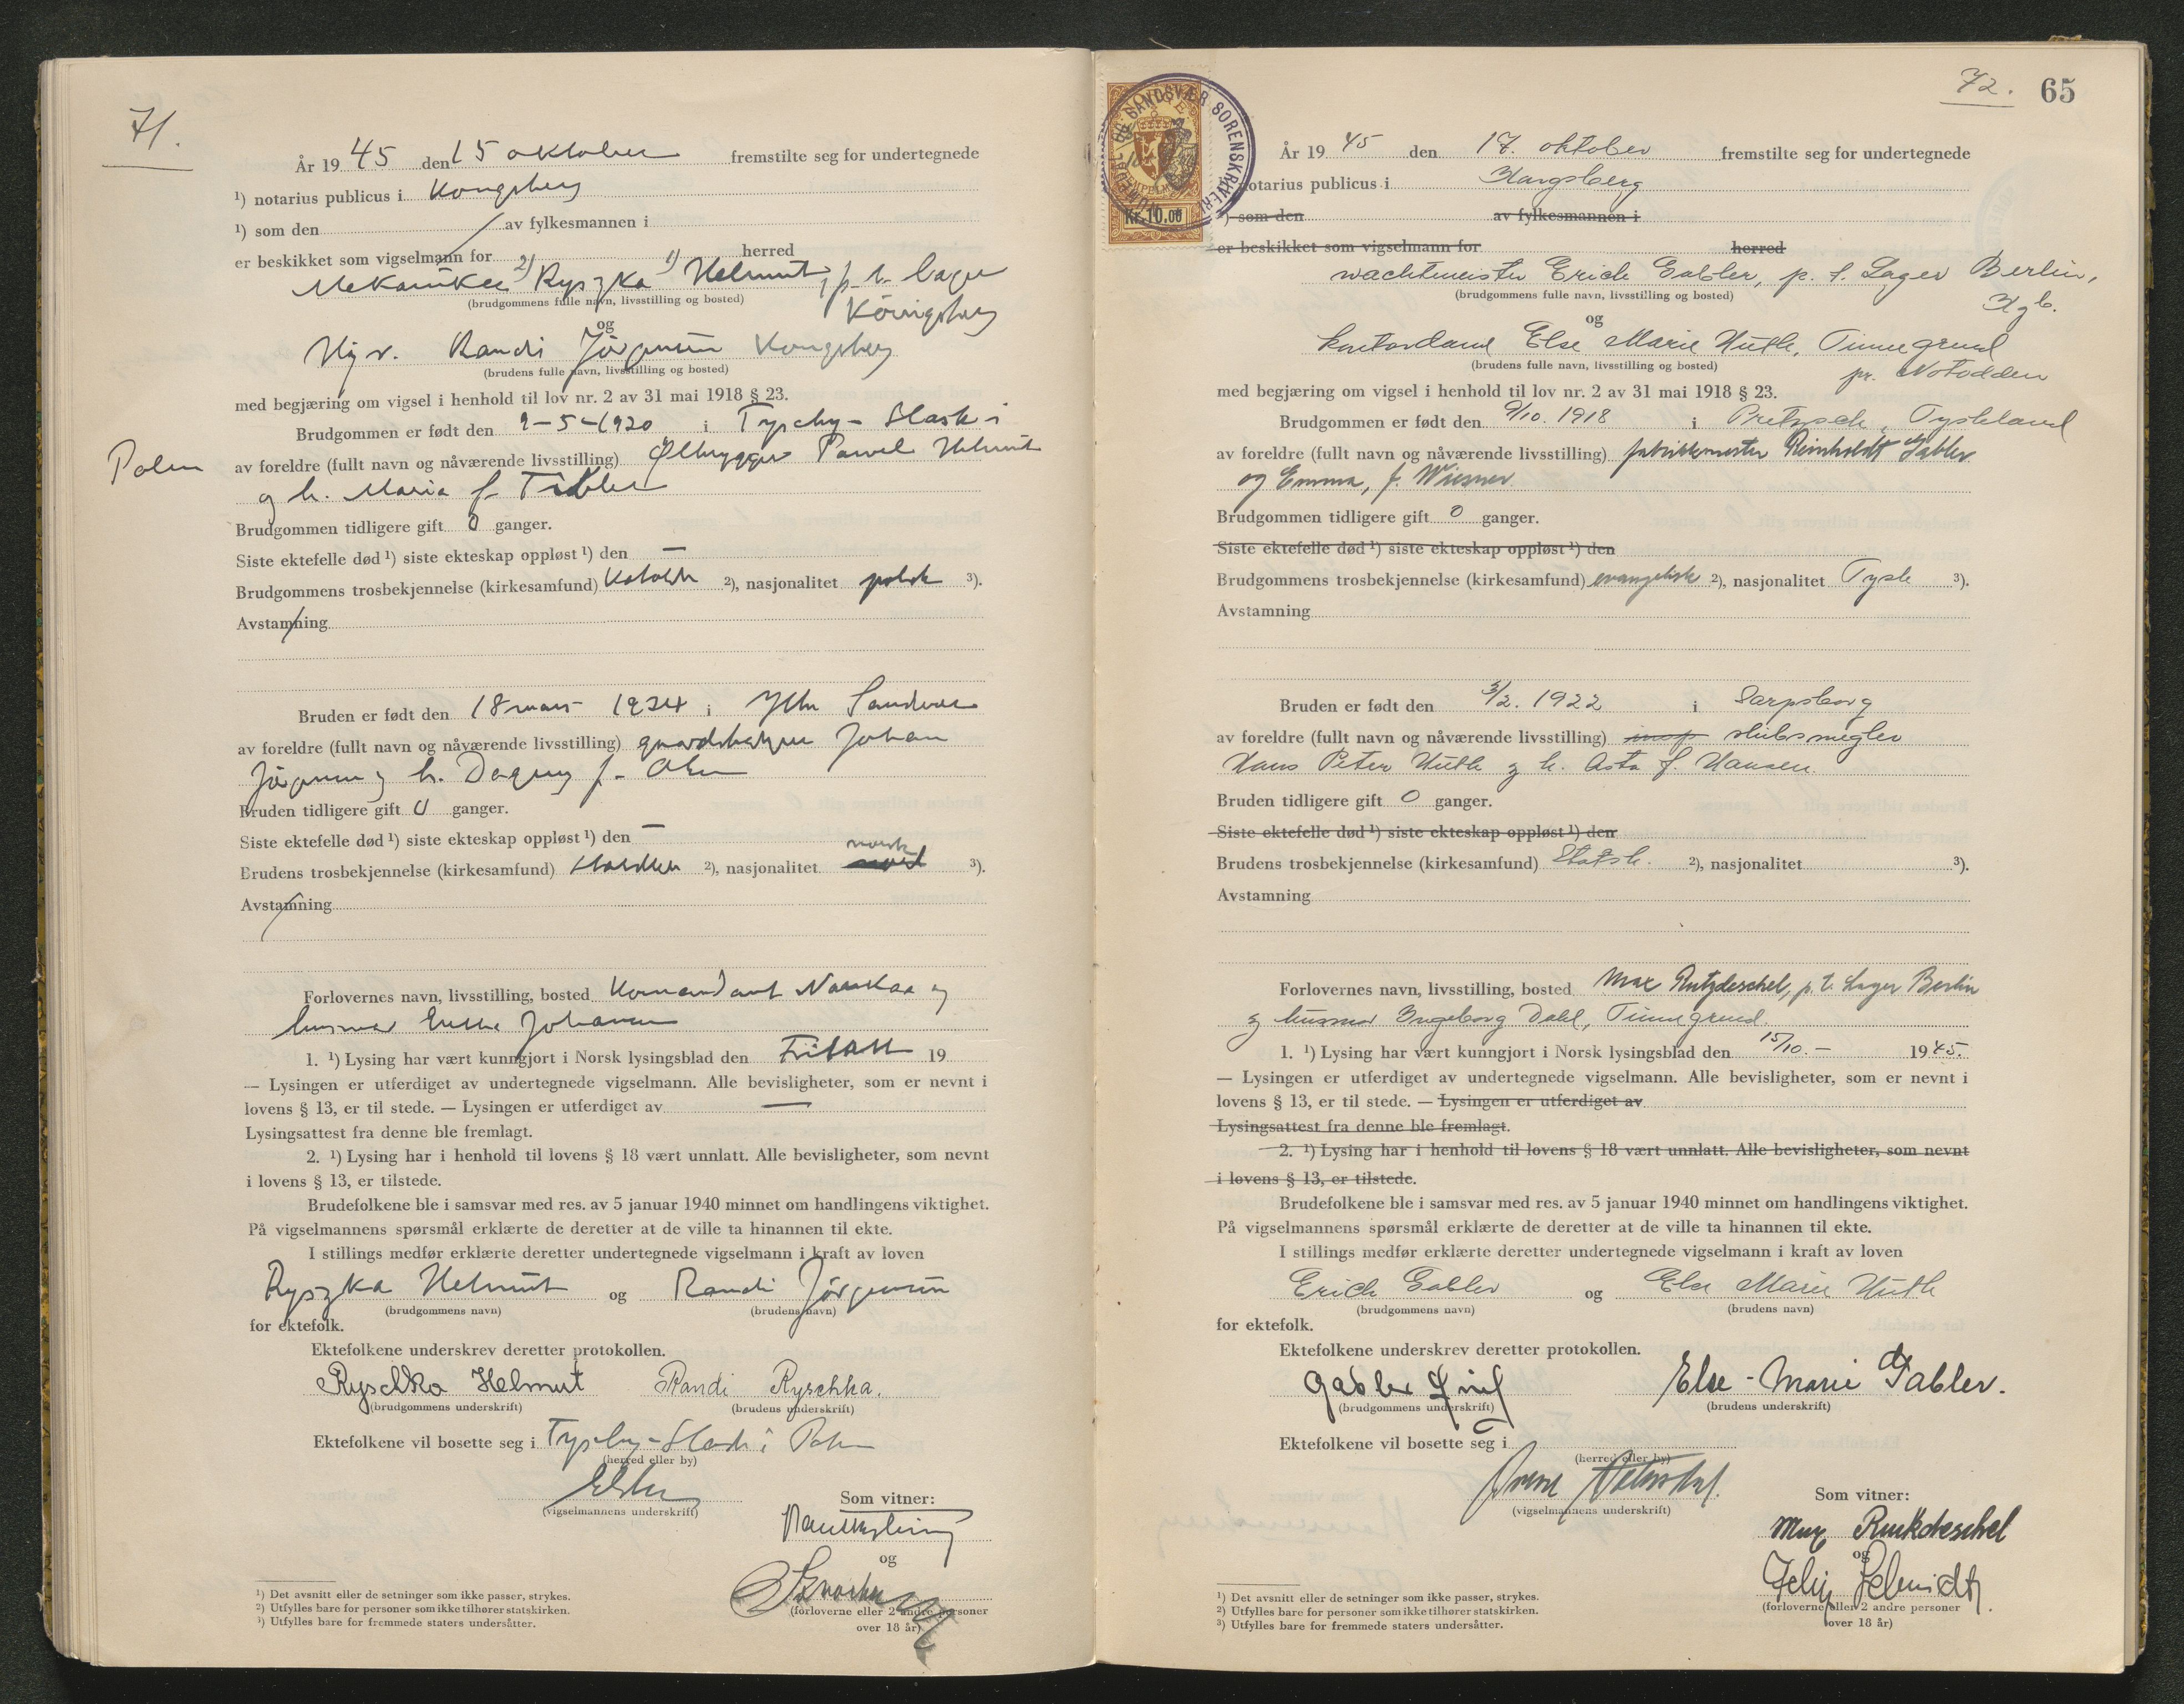 71.
År 19 45 den 15 oktober fremstilte seg for undertegnede
¹) notarius publicus i Kongsberg
¹) som den av fylkesmannen i
er beskikket som vigselmann for herred
Mekaniker 2) Ryszka 1) Helmut, p. t. Lager
(brudgommens fulle navn, livsstilling og bosted)
Kongsberg
og
Randi Jörgensen Kongsberg
(brudens fulle navn, livsstilling og bosted)
med begjæring om vigsel i henhold til lov nr. 2 av 31 mai 1918 § 23.
Brudgommen er født den 9-5-1920 i Tyschy-Slask i
Polen
av foreldre (fullt navn og nåværende livsstilling) Ølbrygger Pawel Helmut
og h. Maria f.
Brudgommen tidligere gift 0 ganger.
Siste ektefelle død ¹) siste ekteskap oppløst ¹) den —
Brudgommens trosbekjennelse (kirkesamfund) Katolsk ²), nasjonalitet polsk ³).
Avstamning
Bruden er født den 18 mars 1924 i Ytre Sandsvær
av foreldre (fullt navn og nåværende livsstilling) gaardsbruker Johan
Jörgensen og h. Dagny f. Olsen
Bruden tidligere gift 0 ganger.
Siste ektefelle død ¹) siste ekteskap oppløst ¹) den —
norsk
Brudens trosbekjennelse (kirkesamfund) ²), nasjonalitet ³).
Avstamning
Forlovernes navn, livsstilling, bosted Komandant og
husmor Johansen
1. ¹) Lysing har vært kunngjort i Norsk lysingsblad den Fritatt 19
— Lysingen er utferdiget av undertegnede vigselmann. Alle bevisligheter, som er nevnt i
lovens § 13, er til stede. — Lysingen er utferdiget av —
Lysingsattest fra denne ble fremlagt.
2. ¹) Lysing har i henhold til lovens § 18 vært unnlatt. Alle bevisligheter, som nevnt
i lovens § 13, er tilstede.
Brudefolkene ble i samsvar med res. av 5 januar 1940 minnet om handlingens viktighet.
På vigselmannens spørsmål erklærte de deretter at de ville ta hinannen til ekte.
I stillings medfør erklærte deretter undertegnede vigselmann i kraft av loven
Ryszka Helmut og Randi Jörgensen
(brudgommens navn) (brudens navn)
for ektefolk.
Ektefolkene underskrev deretter protokollen.
Ryschka Helmut Randi Ryschka.
(brudgommens underskrift) (brudens underskrift)
Ektefolkene vil bosette seg i Tyschy-Slask i Polen
(herred eller by)
(vigselmannens underskrift)
Som vitner:
og
(forloverne eller 2 andre personer
over 18 år)
¹) Det avsnitt eller de setninger som ikke passer, strykes.
²) Utfylles bare for personer som ikke tilhører statskirken.
³) Utfylles bare for fremmede staters undersåtter.
72. 65
OG SANDSVÆR SORENSKRIVERI
Kr. 10.00
År 19 45 den 17. oktober fremstilte seg for undertegnede
notarius publicus i Kongsberg
¹) som den av fylkesmannen i
er beskikket som vigselmann for herred
wachtmeister Erich Gabler, p. t. Lager Berlin,
(brudgommens fulle navn, livsstilling og bosted)
Kgb.
og
kontordame Else Marie Huth, Tinnegrend
(brudens fulle navn, livsstilling og bosted)
pr. Notodden
med begjæring om vigsel i henhold til lov nr. 2 av 31 mai 1918 § 23.
Brudgommen er født den 9/10. 1918 i Pretzsch, Tyskland
av foreldre (fullt navn og nåværende livsstilling) fabrikkmester Reinholdt Gabler
og Emma, f. Wiesner
Brudgommen tidligere gift 0 ganger.
Siste ektefelle død ¹) siste ekteskap oppløst ¹) den
Brudgommens trosbekjennelse (kirkesamfund) evangelisk ²), nasjonalitet Tysk ³).
Avstamning
Bruden er født den 3/2. 1922 i Sarpsborg
av foreldre (fullt navn og nåværende livsstilling) insp skibsmegler
Hans Peter Huth og h. Asta f. Hansen.
Bruden tidligere gift 0 ganger.
Siste ektefelle død ¹) siste ekteskap oppløst ¹) den
Brudens trosbekjennelse (kirkesamfund) Statsk. ²), nasjonalitet ³).
Avstamning
Forlovernes navn, livsstilling, bosted Max Rutzdeschel, p. t. Lager Berlin
og husmor Ingeborg Dahl, Tinnegrend.
1. ¹) Lysing har vært kunngjort i Norsk lysingsblad den 15/10. — 1945.
— Lysingen er utferdiget av undertegnede vigselmann. Alle bevisligheter, som er nevnt i
lovens § 13, er til stede. — Lysingen er utferdiget av
Lysingsattest fra denne ble fremlagt.
2. ¹) Lysing har i henhold til lovens § 18 vært unnlatt. Alle bevisligheter, som nevnt
i lovens § 13, er tilstede.
Brudefolkene ble i samsvar med res. av 5 januar 1940 minnet om handlingens viktighet.
På vigselmannens spørsmål erklærte de deretter at de ville ta hinannen til ekte.
I stillings medfør erklærte deretter undertegnede vigselmann i kraft av loven
Erich Gabler og Else Marie Huth
(brudgommens navn) (brudens navn)
for ektefolk.
Ektefolkene underskrev deretter protokollen.
Gabler Erich Else-Marie Gabler.
(brudgommens underskrift) (brudens underskrift)
Ektefolkene vil bosette seg i
(herred eller by)
(vigselmannens underskrift)
Som vitner:
Max Ruckdeschel
og
Schmidt
(forloverne eller 2 andre personer
over 18 år)
¹) Det avsnitt eller de setninger som ikke passer, strykes.
²) Utfylles bare for personer som ikke tilhører statskirken.
³) Utfylles bare for fremmede staters undersåtter.